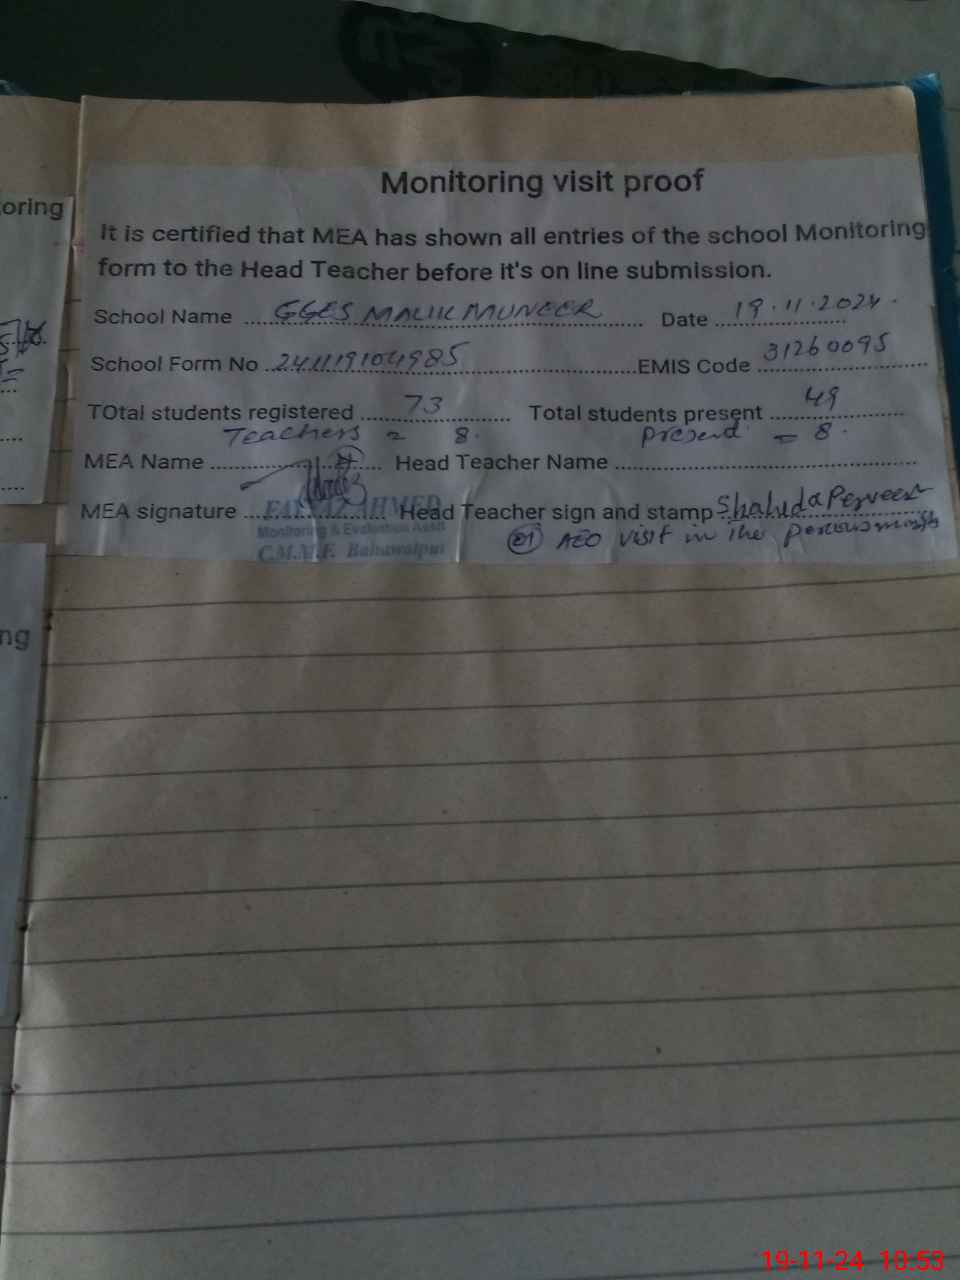 Monitoring visit proof
oring
It is certified that MEA has shown all entries of the school Monitoring
form to the Head Teacher before it's on line submission.
School Name GGES MALIK MUNEER Date 19.11.2024.
School Form No 241119104985 EMIS Code 31260095
TOtal students registered 73 Total students present 49
Teachers = 8. present = 8.
MEA Name Head Teacher Name
MEA signature Head Teacher sign and stamp Shahida Perveen
FAYYAZ AHMED
Monitoring & Evaluation Asstt
C.M.M.F. Bahawalpur
01 AEO visit in the
ng
19-11-24 10:53